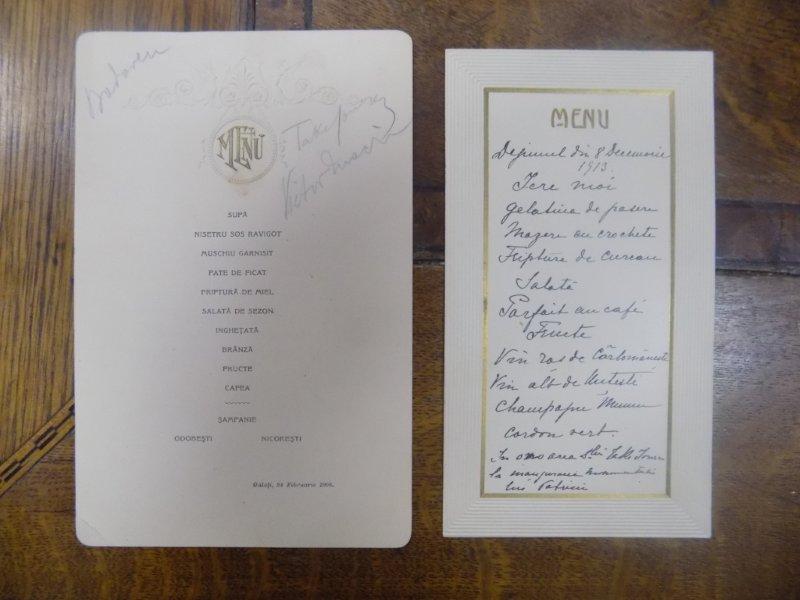 Badareu
MENU
Take Ionescu
Victor
SUPĂ
NISETRU SOS RAVIGOT
MUSCHIU GARNISIT
PATE DE FICAT
FRIPTURĂ DE MIEL
SALATĂ DE SEZON
INGHEȚATĂ
BRÂNZĂ
FRUCTE
CAFEA
ȘAMPANIE
ODOBEȘTI NICOREȘTI
Galați, 24 Februarie 1908.
MENU
Dejunul din 8 Decemvrie
1913.
Icre moi
gelatina de pasere
Mazere cu crochete
Friptura de curcan
Salata
Parfait au café
Fructe
Vin ros de
Vin alb de
Champagne Mumm
cordon vert.
In onoarea Take Ionescu
la inaugurarea monumentului
lui